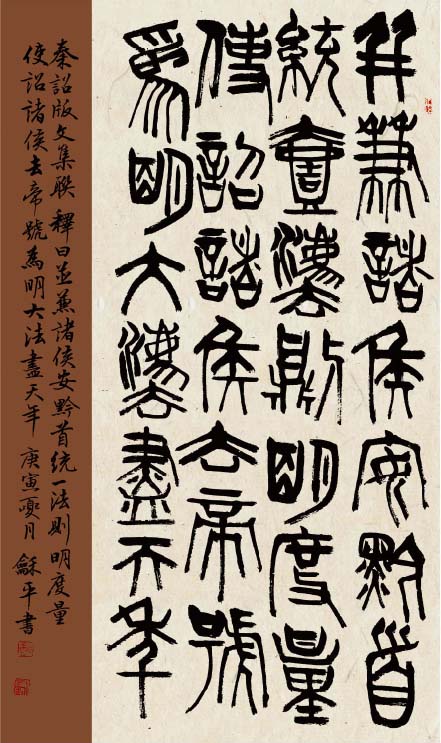 并兼諸侯安黔首
統壹灋則明度量
使詔諸侯去帝號
為明大灋盡天年
秦詔版文集聯釋曰並兼諸侯安黔首統一法則明度量
使詔諸侯去帝號為明大法盡天年 庚寅夏月 龢平書